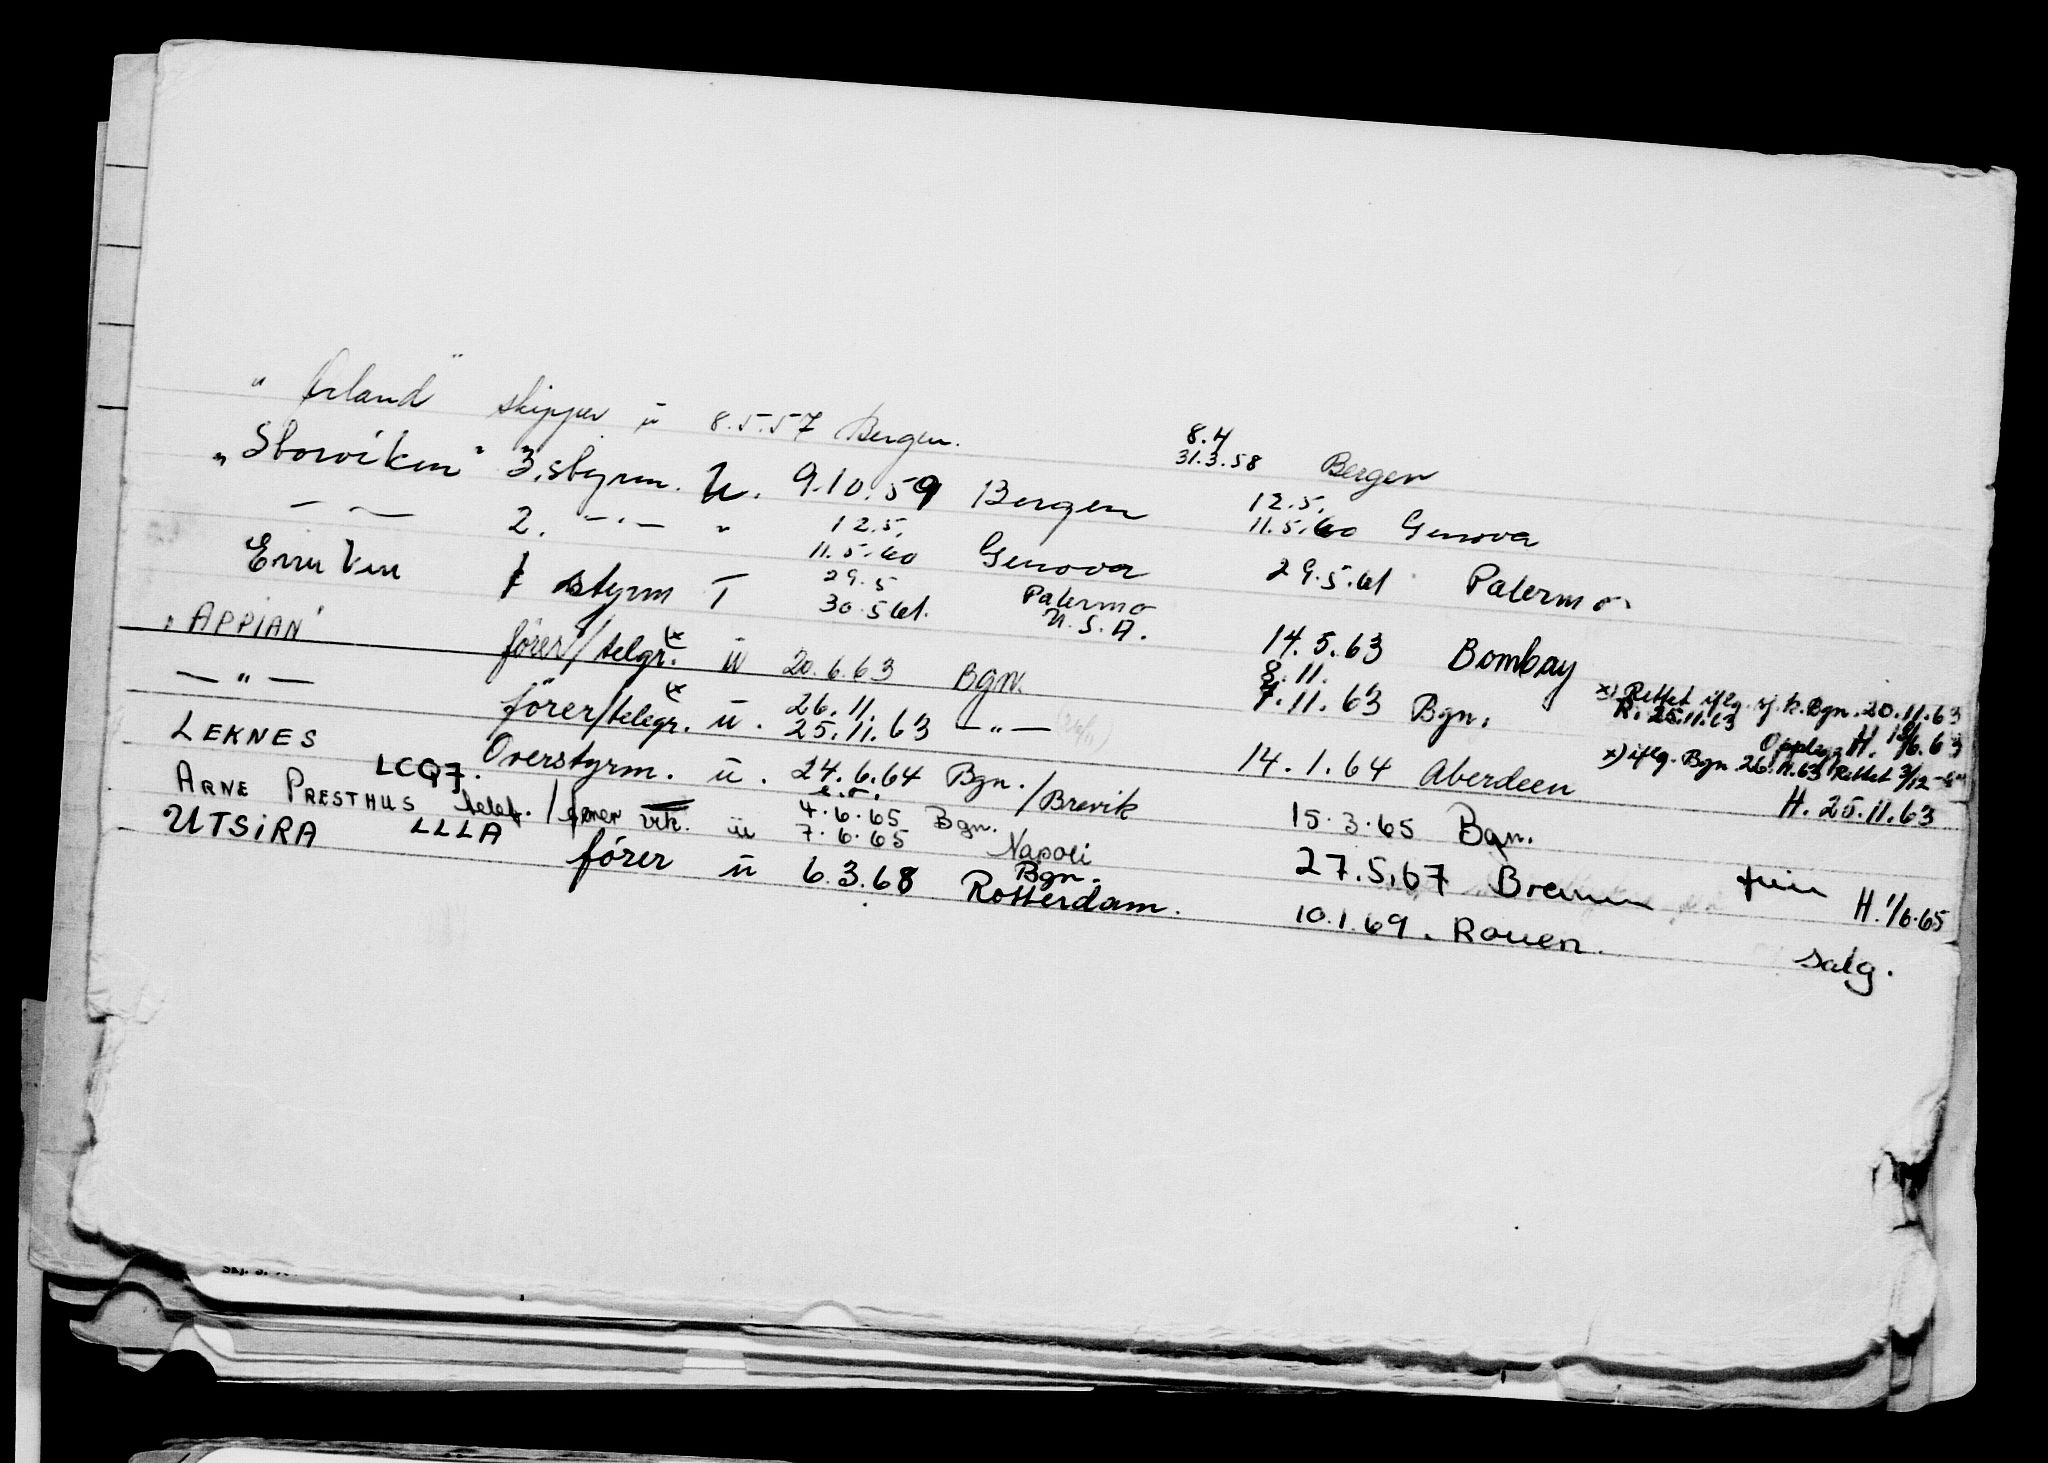 "Ørland" skipper u 8.5.57 Bergen. 8.4 31.3.58 Bergen
"Storviken" 3.styrm. U. 9.10.59 Bergen 12.5. 11.5.60 Genova
— — 2. —"— " 12.5. 11.5.60 Genova 29.5.61 Palermo
styrm T 29.5 30.5.61. Palermo U.S.A. 14.5.63 Bombay
"APPIAN" fører/telgr. x) u 20.6.63 Bgn. 8.11. 7.11.63 Bgn. x) Rettet iflg. sj.k. Bgn. 20.11.63 R. 25.11.63 Opplegg H.
—"— fører/telegr. x) u. 26.11. 25.11.63 —"— (26/11) 14.1.64 Aberdeen x) iflg. Bgn. 26.11.63 Rettet 3/12 H. 25.11.63
LEKNES LCQ7. Overstyrm. u. 24.6.64 Bgn./Brevik 15.3.65 Bgn.
ARNE PRESTHUS LLLA telef./fører u 4.6.65 7.6.65 Bgn. Napoli 27.5.67 Bremen H. 1/6.65
UTSIRA fører u 6.3.68 Bgn. Rotterdam. 10.1.69. Rouen. salg.